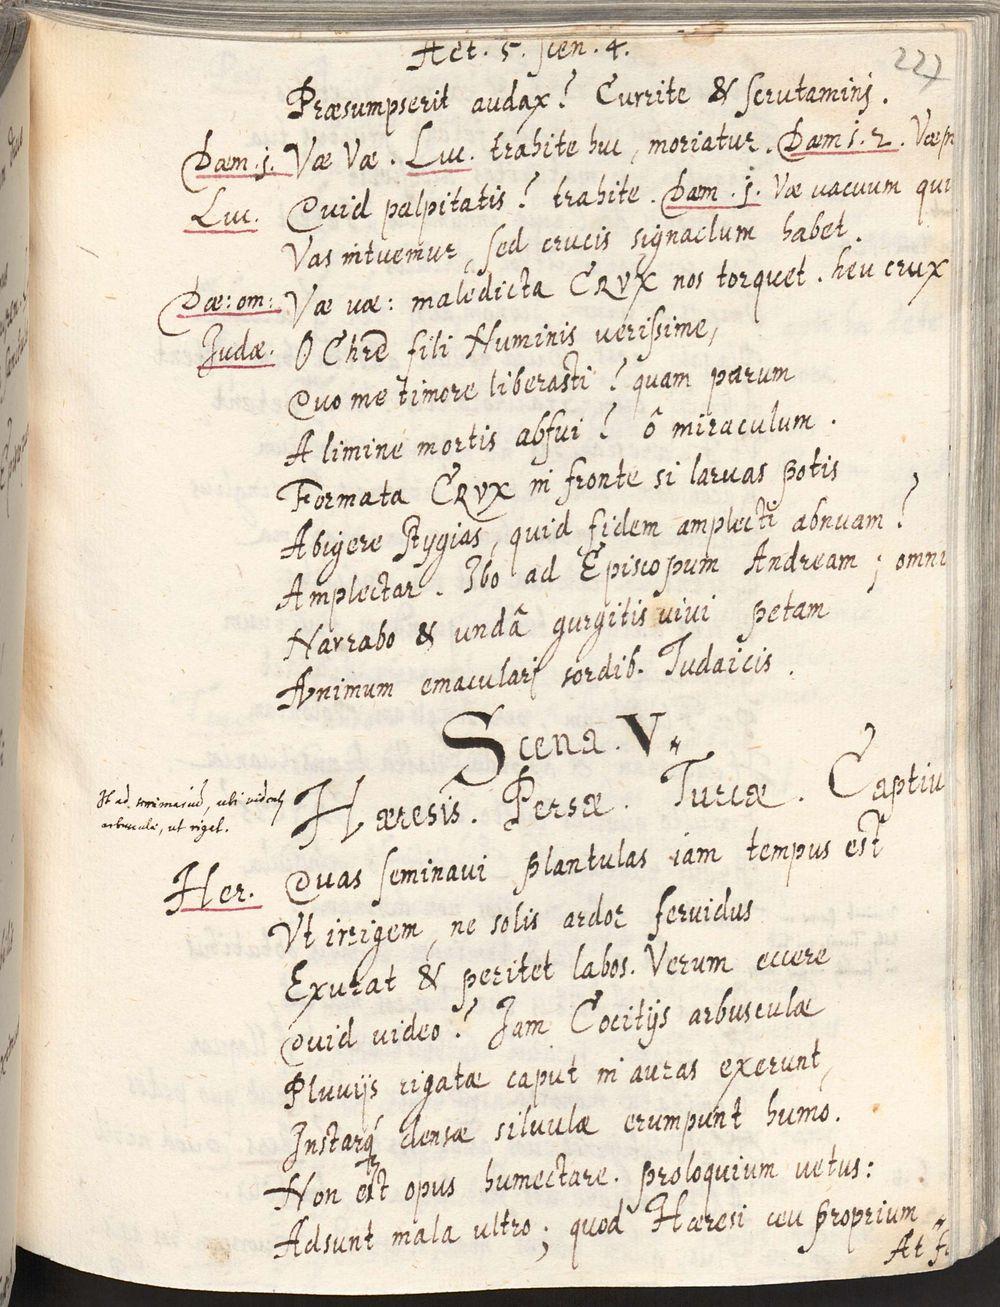 Act. 5. scen. 4.
227
Præsumpserit audax? Currite & scrutaminj.
Dæm. j. Væ Væ. Luc. trahite huc, moriatur. Dæm j. 2. Væ
Luc. Quid palpitatis? trahite. Dæm. j. Væ vacuum qui
Vas intuemur, sed crucis signaclum habet.
Dæ: om: Væ væ: maledicta CRVX nos torquet. heu crux
Judæ. O Chrē fili Numinis verissime,
Quo me timore liberasti? quam parum
A limine mortis abfui? ô miraculum.
Formata CRVX in fronte si larvas potis
Abigere Stygias, quid fidem amplecti abnuam?
Amplectar. Ibo ad Episcopum Andream; omni
Narrabo & undā gurgitis vivi petam
Animum emacularj sordib. Judaicis.
Scena. V.
Hæresis. Persæ. Turcæ. Captiu
arbuscula, ut riget.
Her. Quas seminavi plantulas iam tempus est
Vt irrigem, ne solis ardor fervidus
Exurat & peritet labos. Verum eccere
Quid video? Jam Cocitijs arbusculæ
Pluvijs rigatæ caput in auras exerunt,
Instarq́ densæ silvulæ erumpunt humo.
Non est opus humectare. proloquium vetus:
Adsunt mala ultro; quod Hæresi ceu proprium
At